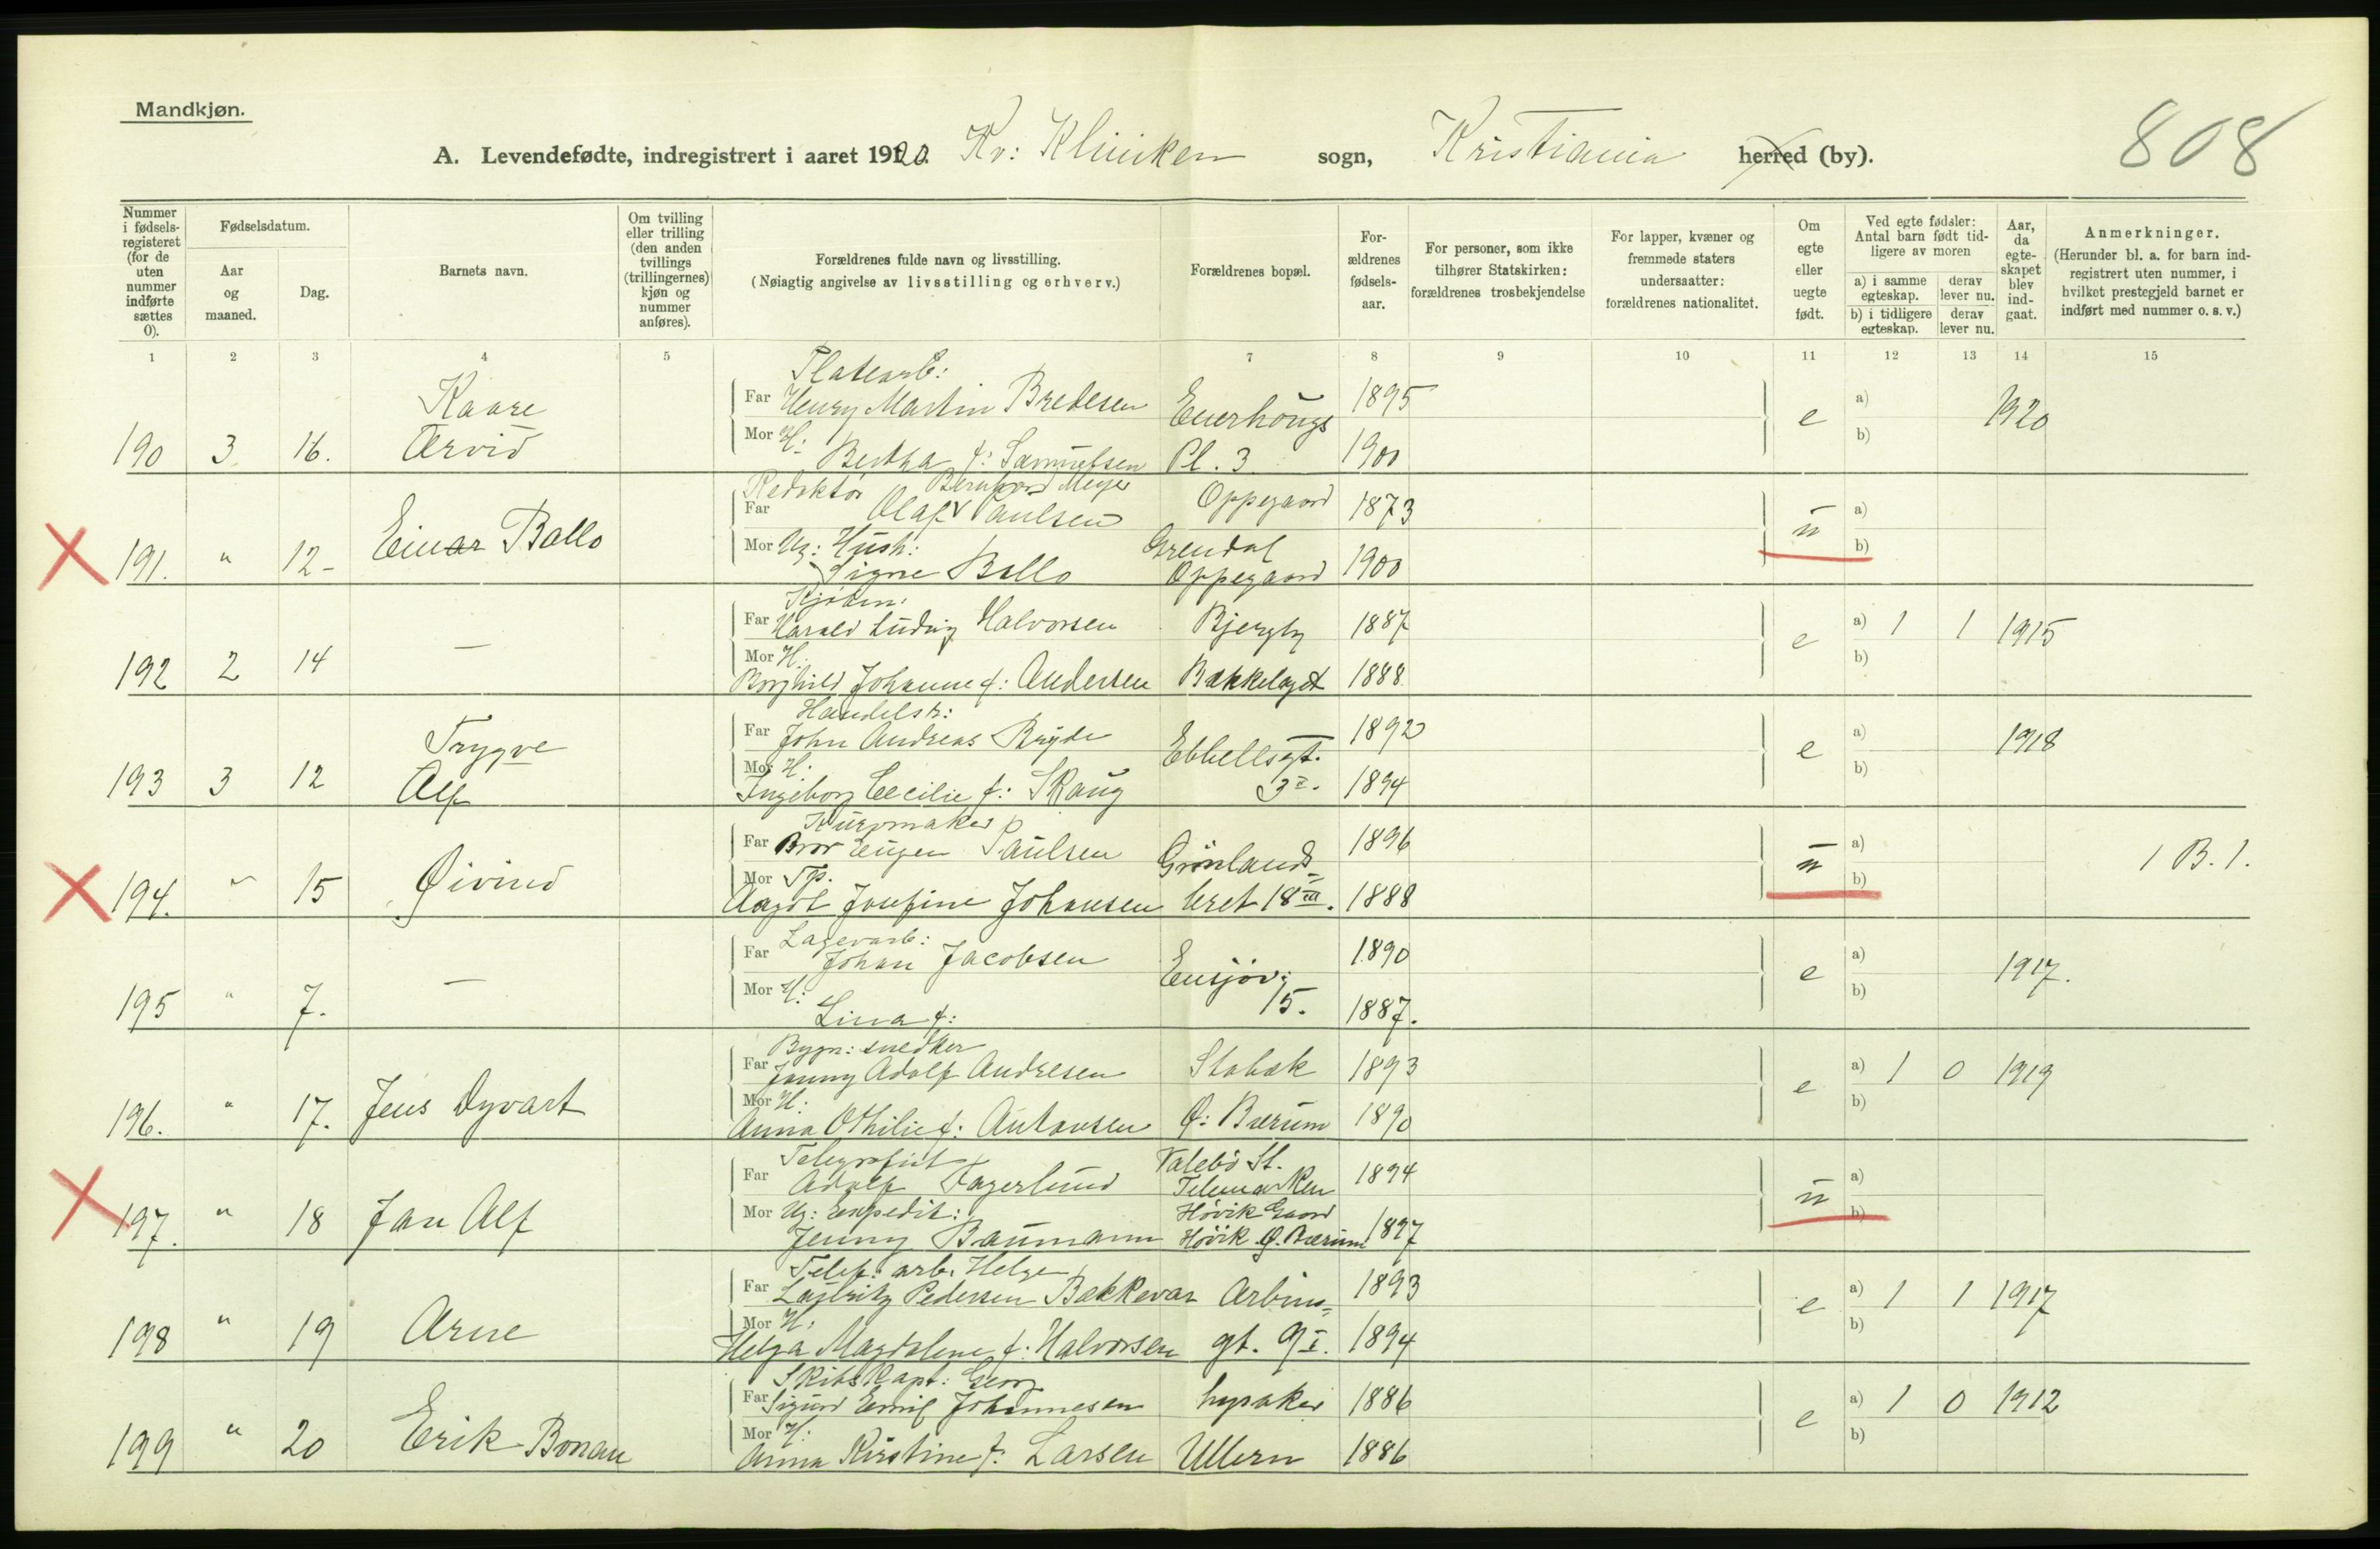 Mandkjøn.
808
A. Levendefødte, indregistrert i aaret 1920. Kv: Kliniken sogn, Kristiania herred (by).
Nummer i fødsels-registeret (for de uten nummer indførte sættes 0).
Fødselsdatum.
Aar og maaned.
Dag.
Barnets navn.
Om tvilling eller trilling (den anden tvillings (trillingernes) kjøn og nummer anføres).
Forældrenes fulde navn og livsstilling.
(Nøiagtig angivelse av livsstilling og erhverv.)
Forældrenes bopæl.
For-ældrenes fødsels-aar.
For personer, som ikke tilhører Statskirken: forældrenes trosbekjendelse
For lapper, kvæner og fremmede staters undersaatter: forældrenes nationalitet.
Om egte eller uegte født.
Ved egte fødsler: Antal barn født tid-ligere av moren
a) i samme egteskap.
derav lever nu.
b) i tidligere egteskap.
derav lever nu.
Aar, da egte-skapet blev ind-gaat.
Anmerkninger.
(Herunder bl. a. for barn ind-registrert uten nummer, i hvilket prestegjeld barnet er indført med nummer o. s. v.)
1 2 3 4 5 7 8 9 10 11 12 13 14 15
Platearb:
Kaare Far Henry Martin Bredesen Enerhougs 1895 a)
190 3 16. Arvid Mor H: Bertha f: Samuelsen Pl. 3 1900 e b) 1920
Redaktør Bernhard Meyer
Far Olaf Paulsen Oppegaard 1873 a)
X 191. " 12- Einar Ballo Mor Ug: Hush: Grendal u b)
Signe Ballo Oppegaard 1900
Far Harald Ludvig Halvorsen Bjergly 1887 a) 1 1 1915
192 2 14 — Mor H. e b)
Borghild Johanne f: Andersen Bækkelaget 1888
Far John Andreas Bryde 1892 a)
Trygve Ebbellsgt. e 1918
193 3 12 Alf Mor H: b)
Ingeborg Cecilie f: Skaug 3 I. 1894
Far Bror Eugen Paulsen Grønlands- 1896 a)
X 194. " 15 Øivind Mor Tp. u b) 1 B. 1.
Aagot Josefine Johansen leret 18 III. 1888
Lagerarb:
Far Johan Jacobsen Ensjøv: 1890 a)
195 " 7. — Mor H: 15. e b) 1917.
Lina f: 1887.
Bygn: snedker
Far Jenny Adolf Andresen Stabæk 1893 a) 1 0 1919
196. " 17. Jens Dyvart Mor H: e b)
Anna Othilie f: Antonsen Ø: Bærum 1890
Telegrafist Valebø St.
Far Adolf Fagerlund Telemarken 1894 a)
X 197. " 18 Jan Alf Mor Ug: Exspedit: Høvik Gaard u b)
Jenny Baumann Høvik Ø. Bærum 1897
Telef: arb: Helge
Far Lauritz Pedersen Bakkevar Arbins= 1893 a) 1 1 1917
198 " 19 Arne Mor H: e b)
Helga Magdalene f: Halvorsen gt. 9 I. 1894
Skibskapt: Georg
Far Sigurd Emil Johannesen Lysaker 1886 a) 1 0 1912
199 " 20 Erik Bonan Mor H: e b)
Anna Kirstine f: Larsen Ullern 1886